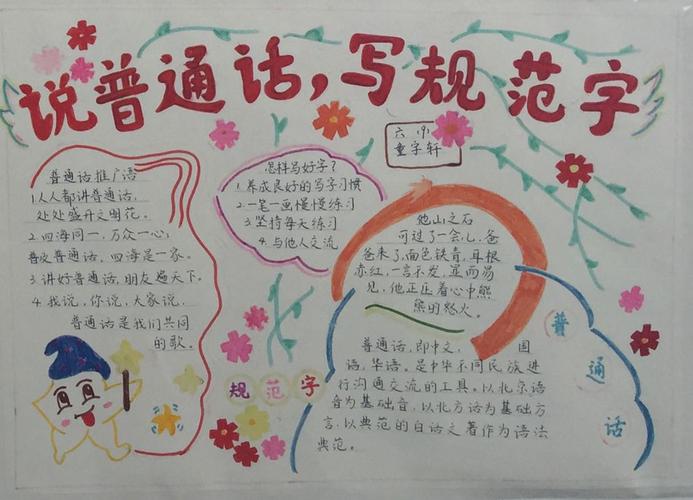 说普通话，写规范字
六(9)
童字轩
普通话推广语
1.人人都讲普通话,
处处盛开文明花。
2.四海同一，万众一心；
普及普通话，四海是一家。
3.讲好普通话,朋友遍天下。
4.我说，你说，大家说，
普通话是我们共同
的歌。
怎样写好字？
1.养成良好的写字习惯
2.一笔一画慢慢练习
3.坚持每天练习
4.与他人交流
他山之石
可过了一会儿,爸
爸来了,面色铁青，耳根
赤红,一言不发，显而易
见,他正压着心中熊
熊的怒火。
规范字
普通话,即中文，国
语,华语。是中华不同民族进
行沟通交流的工具。以北京语
音为基础音,以北方话为基础方
言,以典范的白话文著作为语法
典范。
普通话